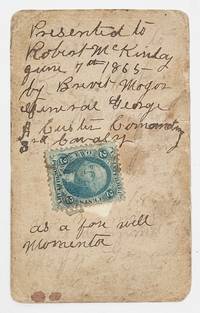 Presented to
Robert McKinley
June 7th 1865
by Brevet Major
General George
Custer Comanding
3rd Cavalry
2 2
as a fare well
Momento